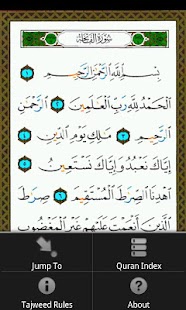 سُورَةُ الْفَاتِحَةِ
بِسْمِ ٱللَّهِ ٱلرَّحْمَٰنِ ٱلرَّحِيمِ ١
ٱلْحَمْدُ لِلَّهِ رَبِّ ٱلْعَٰلَمِينَ ٢ ٱلرَّحْمَٰنِ
ٱلرَّحِيمِ ٣ مَٰلِكِ يَوْمِ ٱلدِّينِ ٤
إِيَّاكَ نَعْبُدُ وَإِيَّاكَ نَسْتَعِينُ ٥
ٱهْدِنَا ٱلصِّرَٰطَ ٱلْمُسْتَقِيمَ ٦ صِرَٰطَ
ٱلَّذِينَ أَنْعَمْتَ عَلَيْهِمْ غَيْرِ ٱلْمَغْضُوبِ
Jump To
Quran Index
Tajweed Rules
About